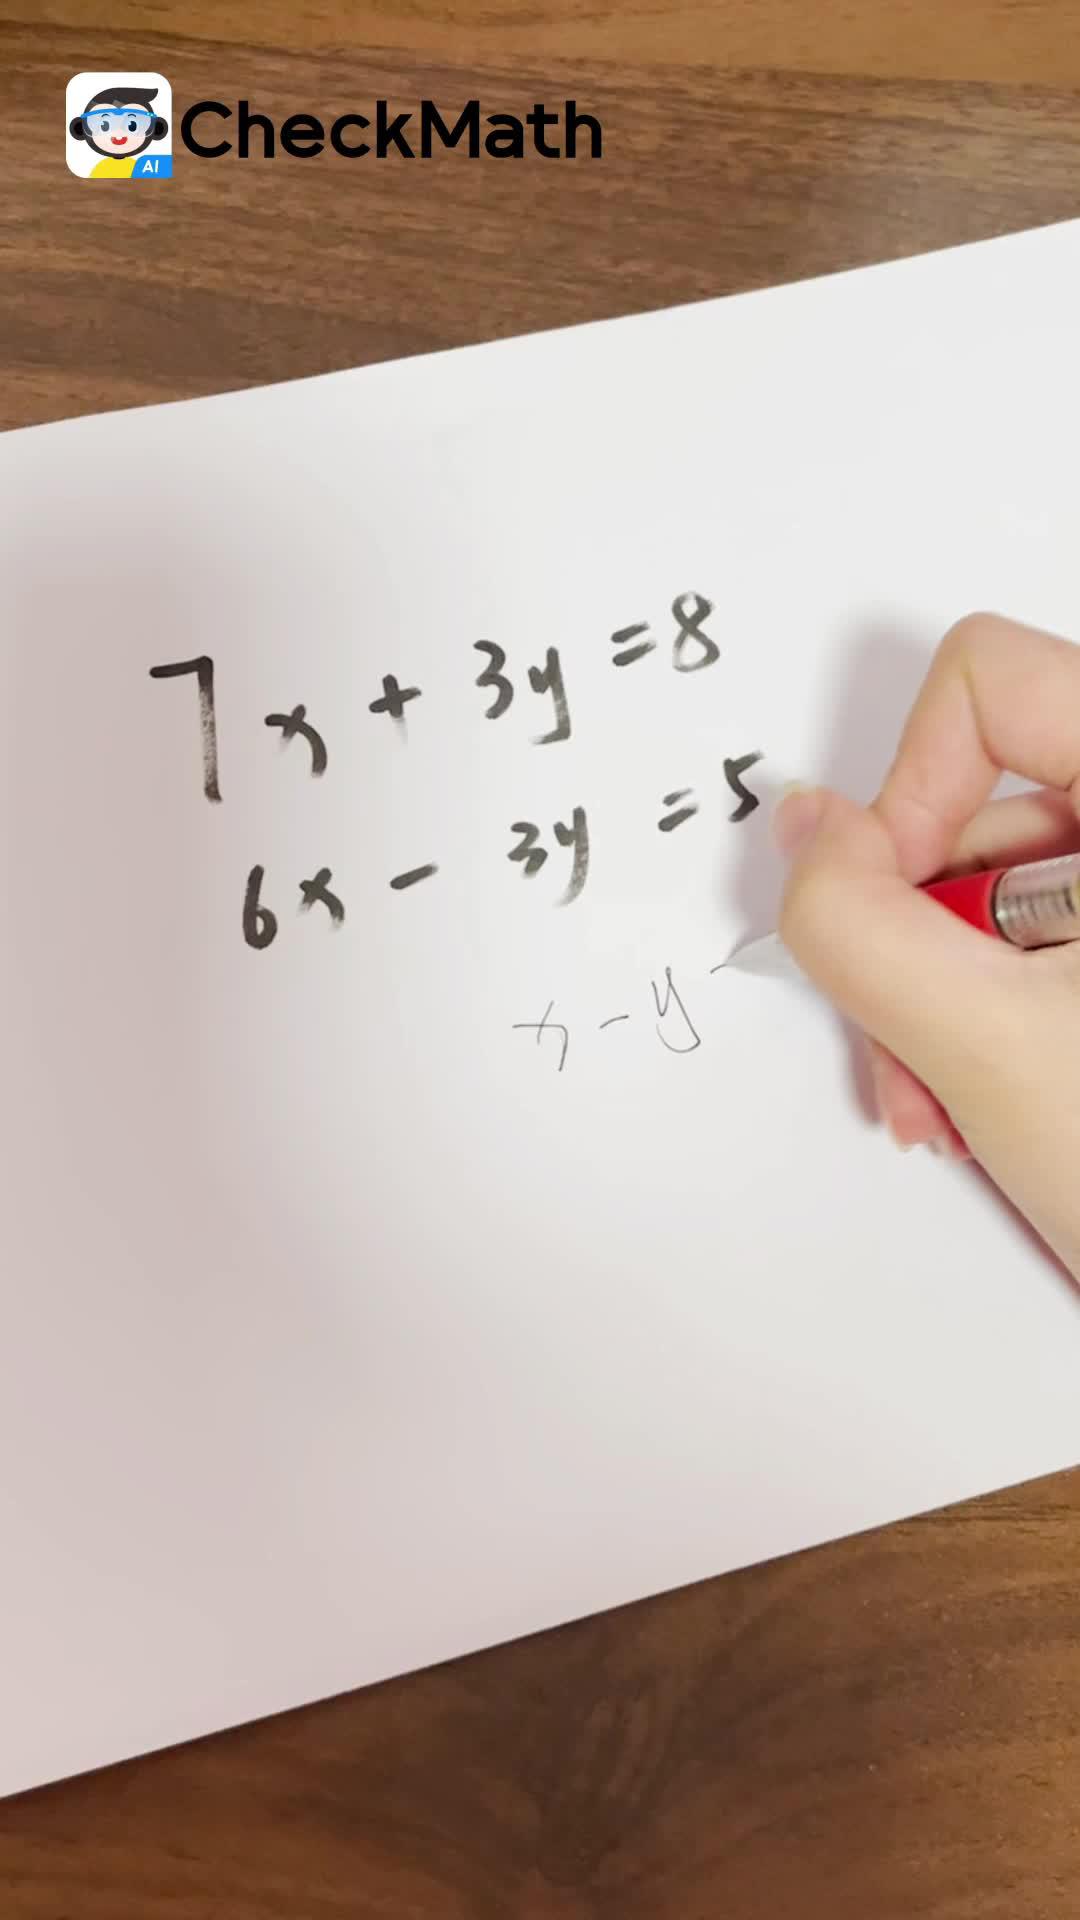 CheckMath
AI
7x + 3y = 8
6x - 3y = 5
x - y